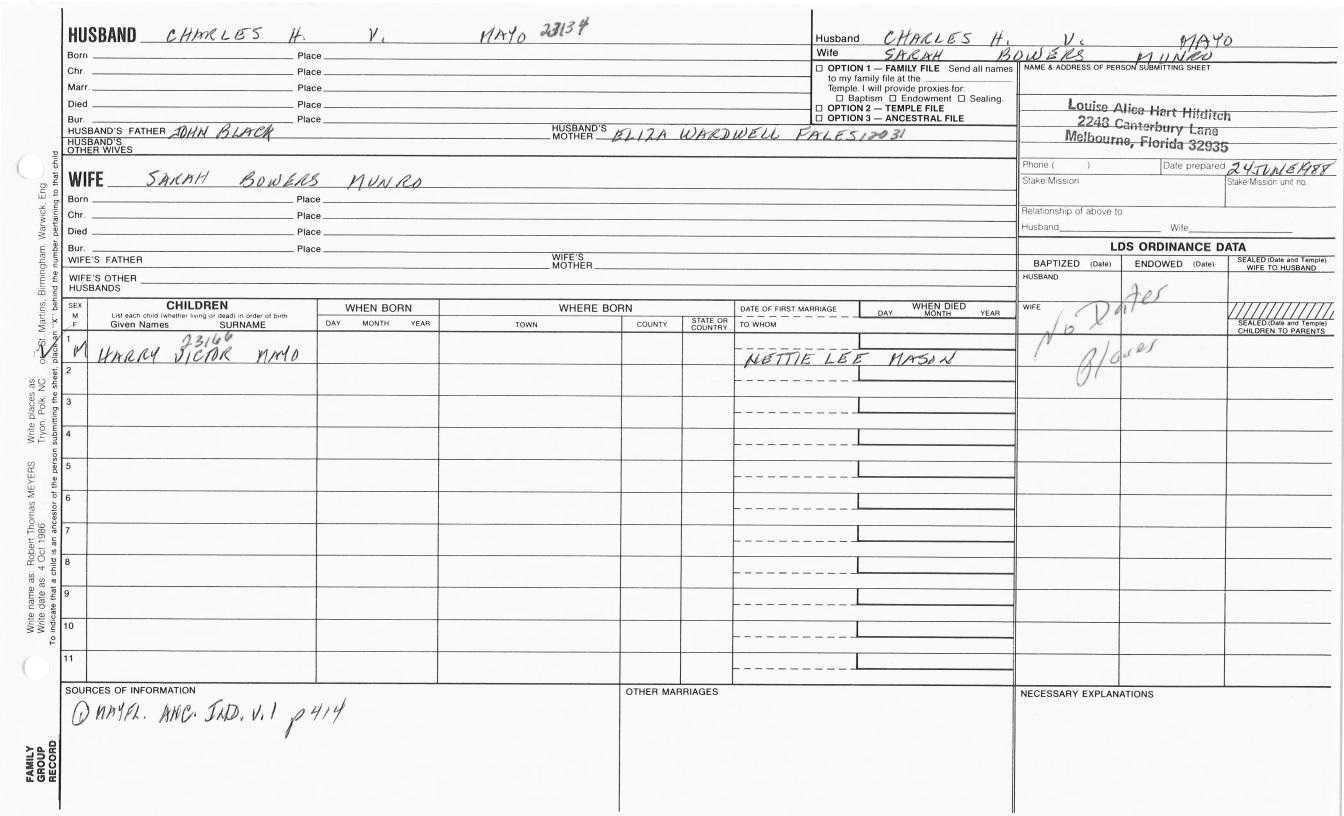 HUSBAND CHARLES H. V. MAYO 23134
Born Place
Chr. Place
Marr. Place
Died Place
Bur. Place
HUSBAND'S FATHER JOHN BLACK HUSBAND'S MOTHER ELIZA WARDWELL FALES 12031
HUSBAND'S OTHER WIVES
Husband CHARLES H. V. MAYO
Wife SARAH BOWERS MUNRO
☐ OPTION 1 — FAMILY FILE Send all names
to my family file at the
Temple. I will provide proxies for:
☐ Baptism ☐ Endowment ☐ Sealing.
☐ OPTION 2 — TEMPLE FILE
☐ OPTION 3 — ANCESTRAL FILE
NAME & ADDRESS OF PERSON SUBMITTING SHEET
Louise Alice Hart Hilditch
2248 Canterbury Lane
Melbourne, Florida 32935
Phone ( ) Date prepared 24 JUNE 1988
Stake/Mission Stake/Mission unit no.
Relationship of above to
Husband Wife
WIFE SARAH BOWERS MUNRO
Born Place
Chr. Place
Died Place
Bur. Place
WIFE'S FATHER WIFE'S MOTHER
WIFE'S OTHER HUSBANDS
LDS ORDINANCE DATA
BAPTIZED (Date) ENDOWED (Date) SEALED (Date and Temple) WIFE TO HUSBAND
HUSBAND
WIFE
SEALED (Date and Temple) CHILDREN TO PARENTS
No Dates
Places
SEX M F CHILDREN WHEN BORN WHERE BORN DATE OF FIRST MARRIAGE WHEN DIED
List each child (whether living or dead) in order of birth
Given Names SURNAME DAY MONTH YEAR TOWN COUNTY STATE OR COUNTRY TO WHOM DAY MONTH YEAR
23166
1 M HARRY VICTOR MAYO NETTIE LEE MASON
2
3
4
5
6
7
8
9
10
11
SOURCES OF INFORMATION
① MAYFL. ANC. IND. V. 1 p 414
OTHER MARRIAGES
NECESSARY EXPLANATIONS
Write name as: Robert Thomas MEYERS Write places as: Tryon, Polk, NC St. Martins, Birmingham, Warwick, Eng
Write date as: 4 Oct 1986
To indicate that a child is an ancestor of the person submitting the sheet, place an "X" behind the number pertaining to that child
FAMILY GROUP RECORD